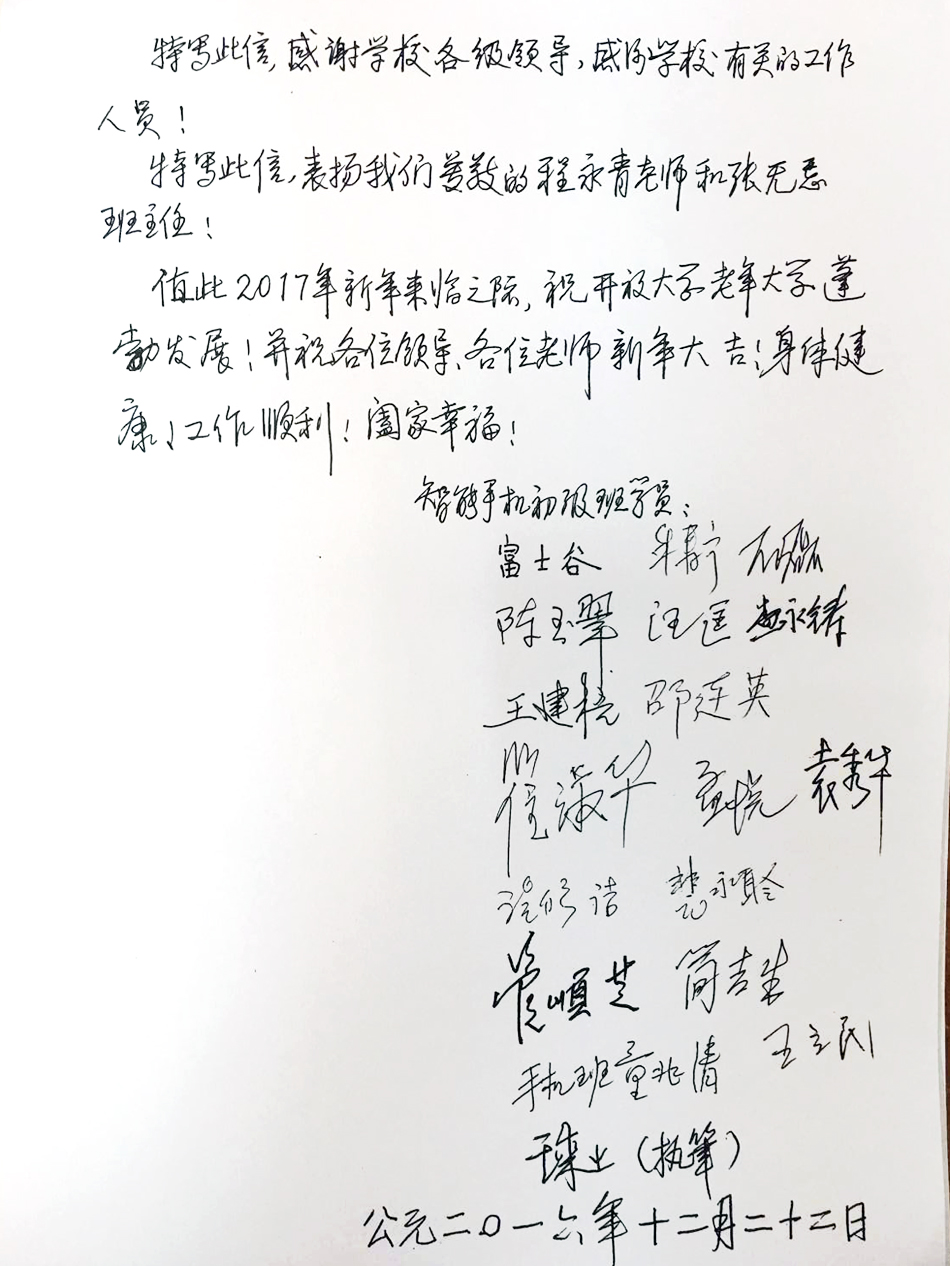 特写此信,感谢学校各级领导,感谢学校有关的工作
人员!
特写此信,表扬我们尊敬的程永青老师和张无忌
班主任!
值此2017年新年来临之际,祝开放大学老年大学蓬
勃发展!并祝各位领导、各位老师新年大吉!身体健
康、工作顺利!阖家幸福!
智能手机初级班学员:
富士谷 石磊
陈玉翠 汪匡
王建 邵连英
淑华 孟悦 袁秀华
永聆
管顺芝 简吉生
手机班童兆清 王立民
业(执笔)
公元二〇一六年十二月二十二日